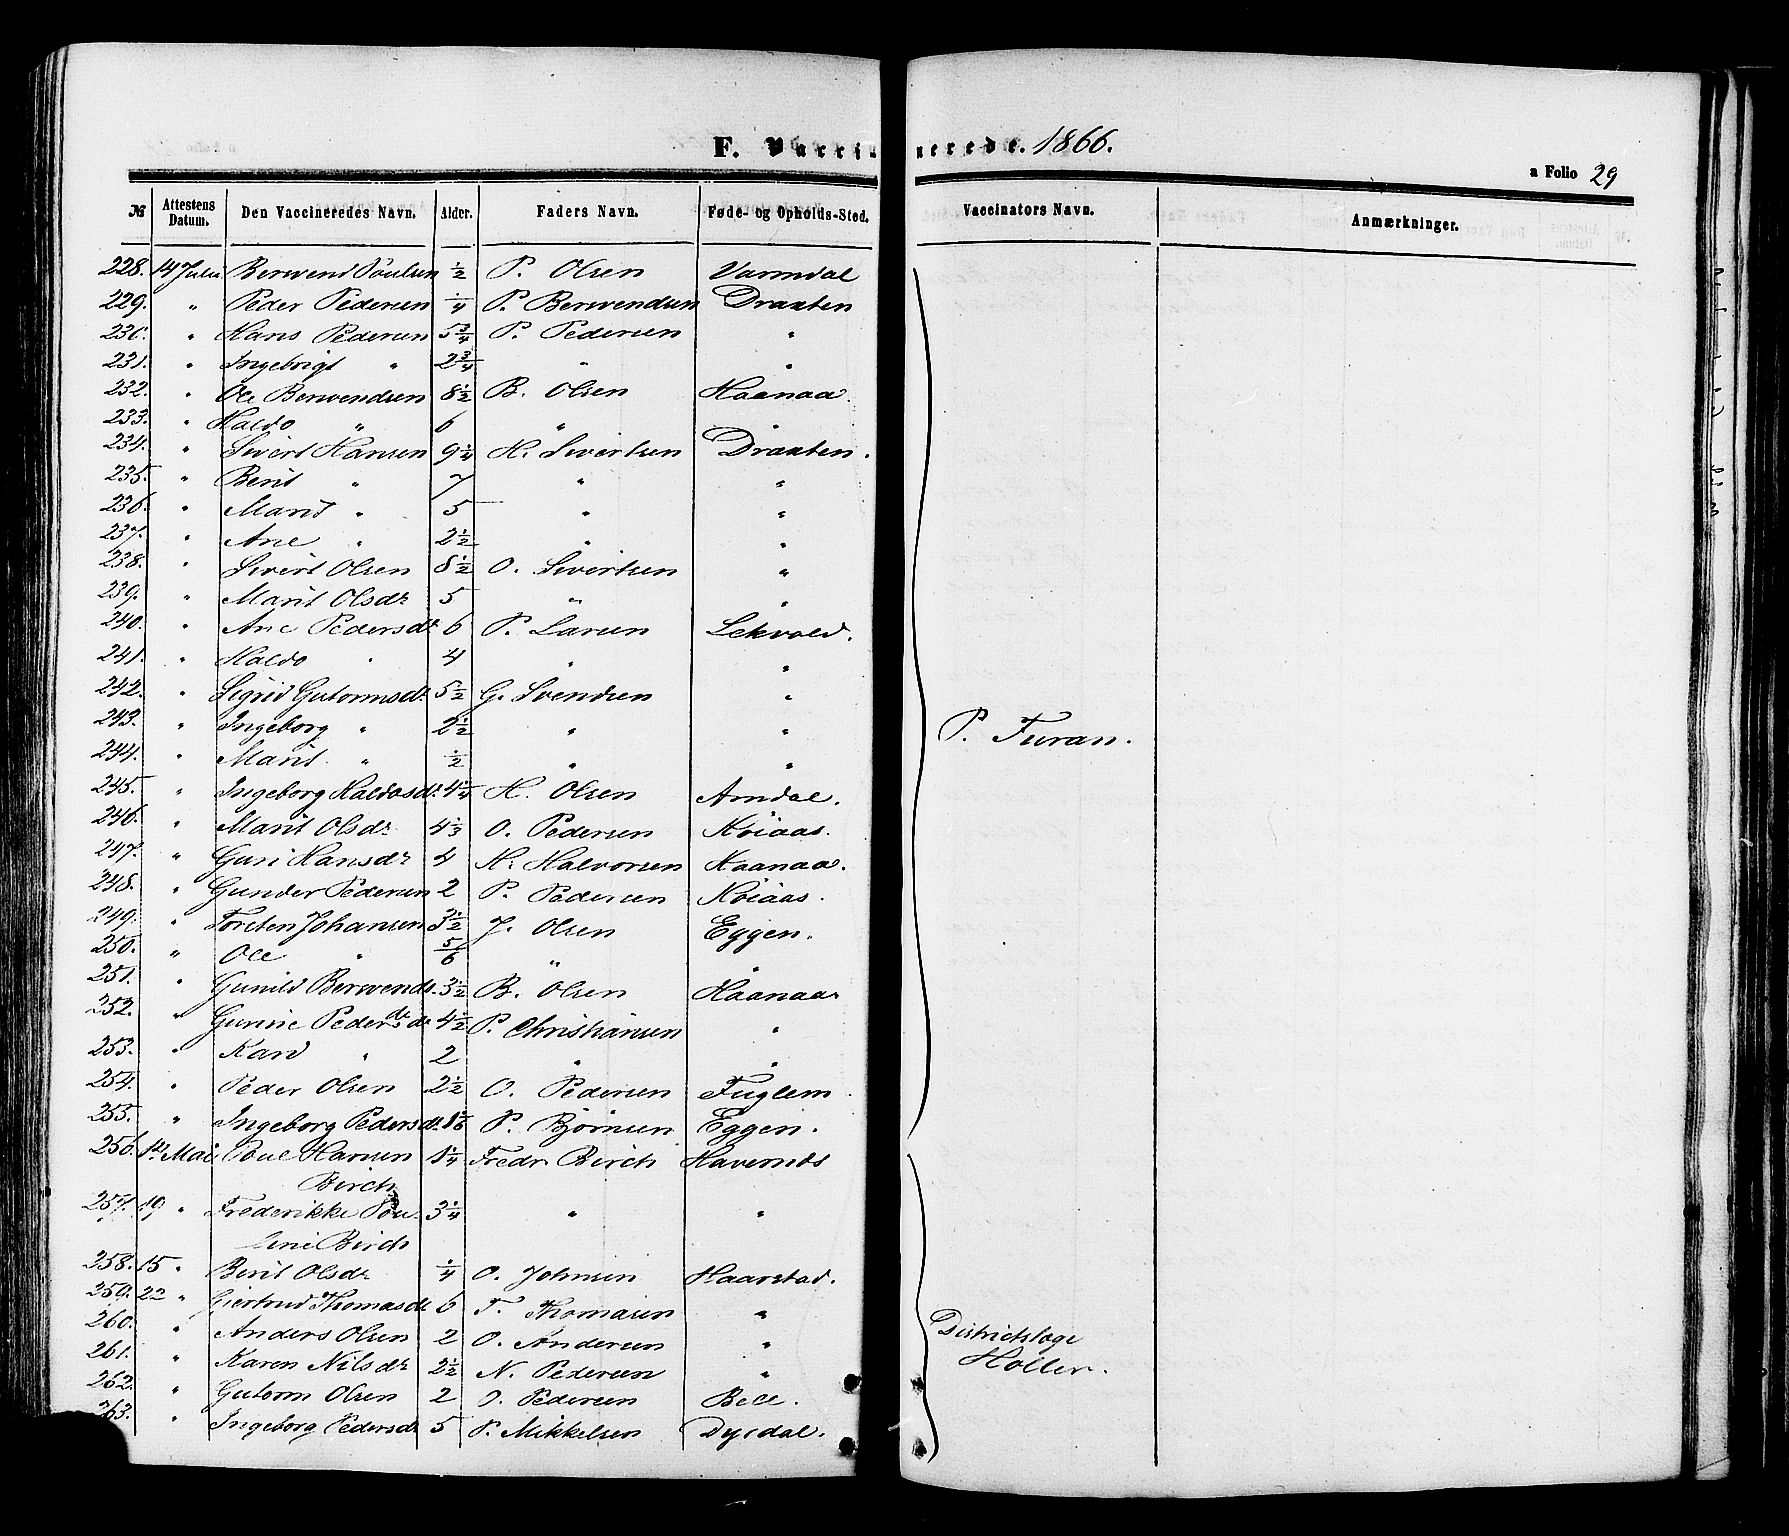 F. Vacci- nerede. 1866.
a Folio 29
№ Attestens Datum. Den Vaccineredes Navn. Alder. Faders Navn. Føde- og Opholds-Sted. Vaccinators Navn. Anmærkninger.
228. 14 Juli Berwend Poulsen ½ P. Olsen Varmdal
229. " Peder Pedersen ¼ P. Berwendsen Draxten
230. " Hans Pedersen 5¾ P. Pedersen "
231. " Ingebrigt " 2¾ " "
232. " Ole Berwendsen 8½ B. Olsen Haanaa.
233. " Haldo " 6 " "
234. " Sivert Hansen 9¼ H. Sivertsen Draxten.
235. " Berit " 7 " "
236. " Marit " 5 " "
237. " Ane " 2½ " "
238. " Sivert Olsen 8½ O. Sivertsen "
239. " Marit Olsdr 5 " "
240. " Ane Pedersdr 6 P. Larsen Lekvold.
241. " Haldo " 4 " "
242. " Sigrid Gutormsdr. 5½ G. Svendsen "
243. " Ingeborg " 2½ " "
P. Furan.
244. " Marit " ½ " "
245. " Ingeborg Haldosdr. 4¼ H. Olsen Amdal.
246. " Marit Olsdr 4⅓ O. Pedersen Høiaas.
247. " Guri Hansdr 4 H. Halvorsen Haanaa.
248. " Gunder Pedersen 2 P. Pedersen Høiaas.
249. " Torsten Johansen 3½ J. Olsen Eggen.
250. " Ole " 5/6 " "
251. " Gunild Berwends. 3½ B. Olsen Haanaa
dr
252. " Gurine Pedersdr 4½ P. Christiansen "
253. " Kari " 2 " "
254. " Peder Olsen 2½ O. Pedersen Fuglem
255. " Ingeborg Pedersdr. P. Bjørnsen Eggen.
256. Mai Poul Hansen 1¼ Fredr Birch Havernds
Birch
257. 19 " Frederikke Pou- 3¼ " "
line Birch
258. 15 " Berit Olsdr ¼ O. Johnsen Haarstad.
259. 22 " Giertrud Thomasdr 6 T. Thomasen "
260. " Anders Olsen 2 O. Andersen "
Districtslæge
261. " Karen Nilsdr 2½ N. Pedersen "
Holler.
262. " Gutorm Olsen 2 O. Pedersen Bell.
263. " Ingeborg Pedersdr 5 P. Mikkelsen Dyrdal.